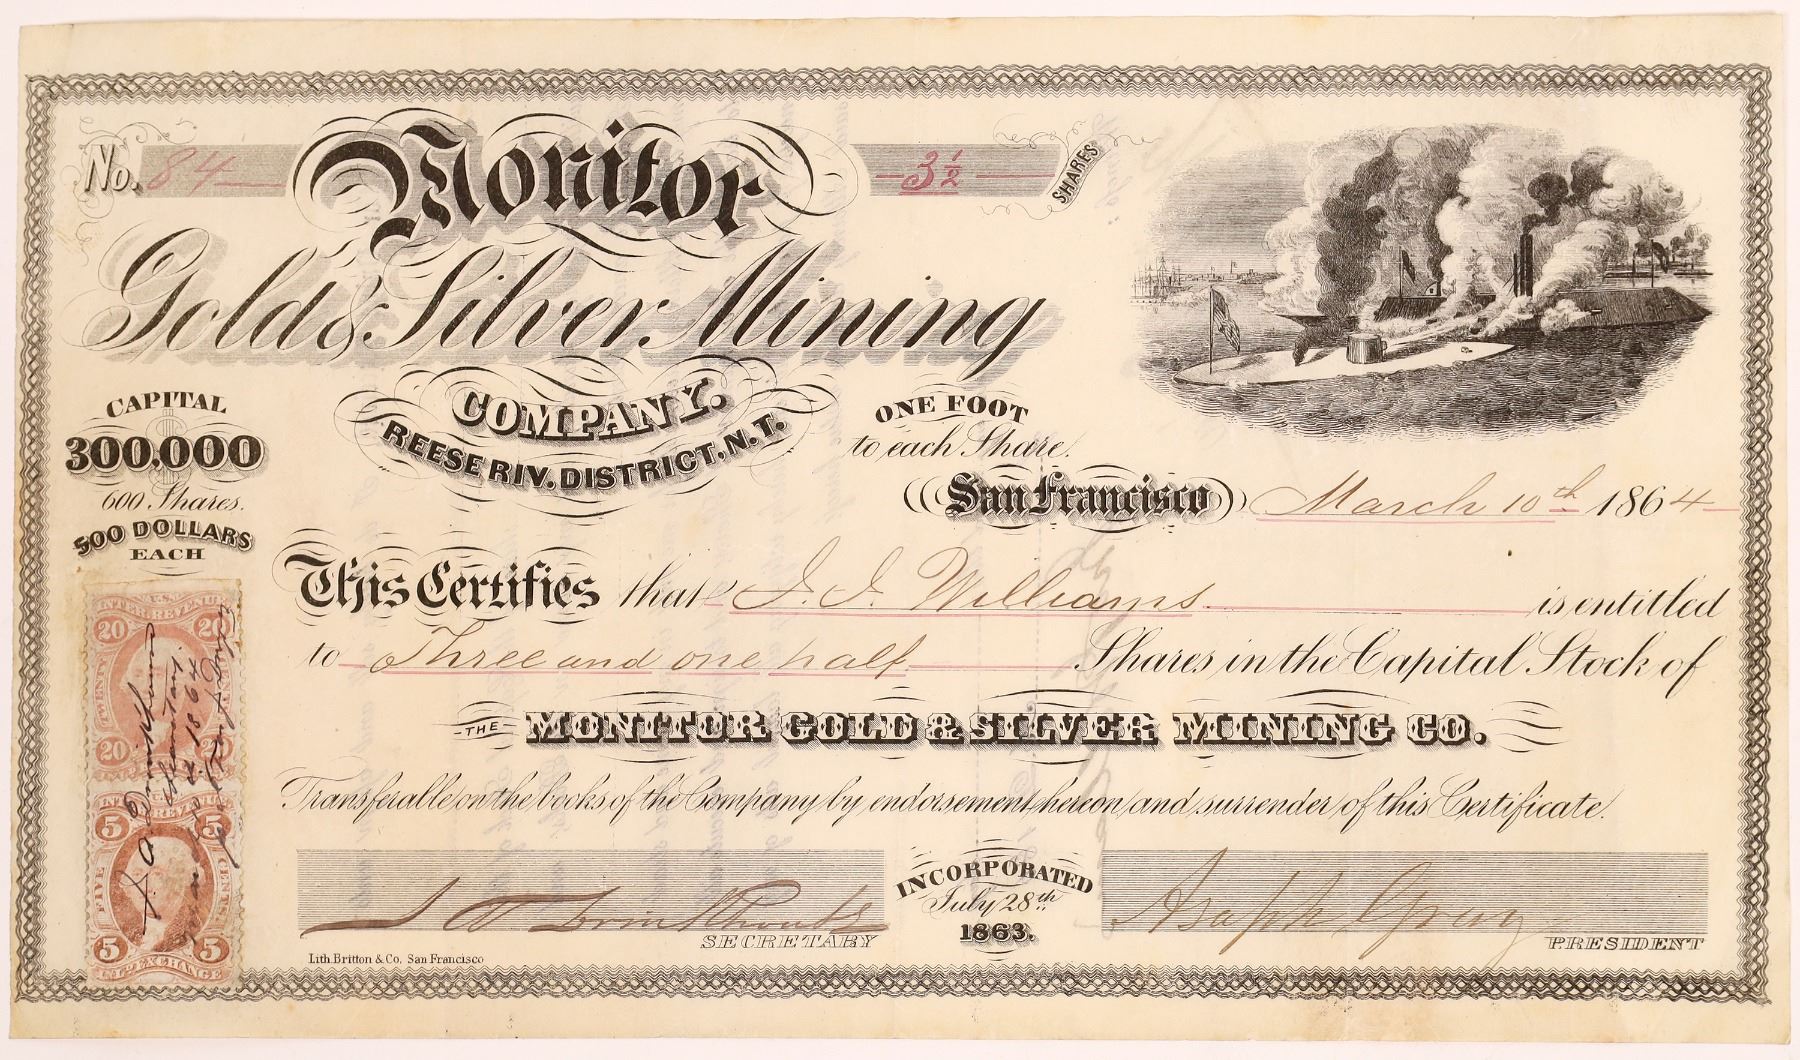 No. 84
Monitor
3½ SHARES
Gold & Silver Mining
COMPANY.
REESE RIV. DISTRICT, N.T.
CAPITAL
300,000
600 Shares.
500 DOLLARS
EACH
ONE FOOT
to each Share.
San Francisco March 10th 1864
This Certifies that J. J. Williams is entitled
to Three and one half Shares in the Capital Stock of
THE MONITOR GOLD & SILVER MINING CO.
Transferable on the books of the Company by endorsement hereon and surrender of this Certificate.
INCORPORATED
July 28th
1863.
SECRETARY
Asaph Gray
PRESIDENT
Lith. Britton & Co. San Francisco
U.S.
INTER. REVENUE
20 20
TWENTY CENTS
20 20
INTER. REVENUE
5 5
FIVE CENTS
5 5
INL. EXCHANGE
1864